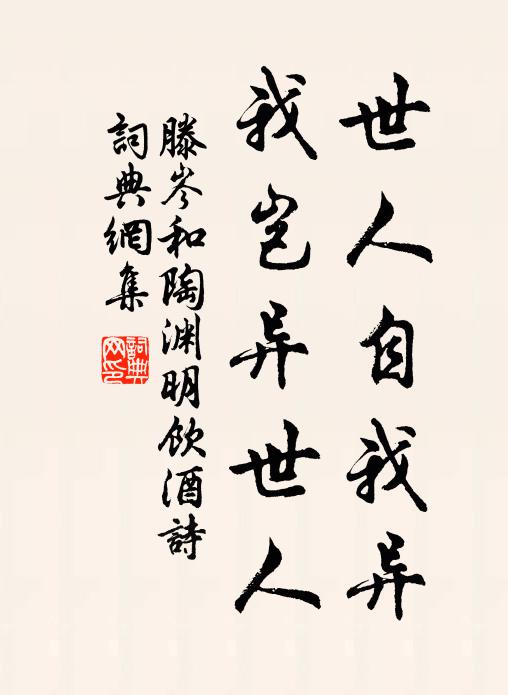 世人自我异
我岂异世人
滕岑和陶渊明飲酒詩
詞典網集
詞典网印